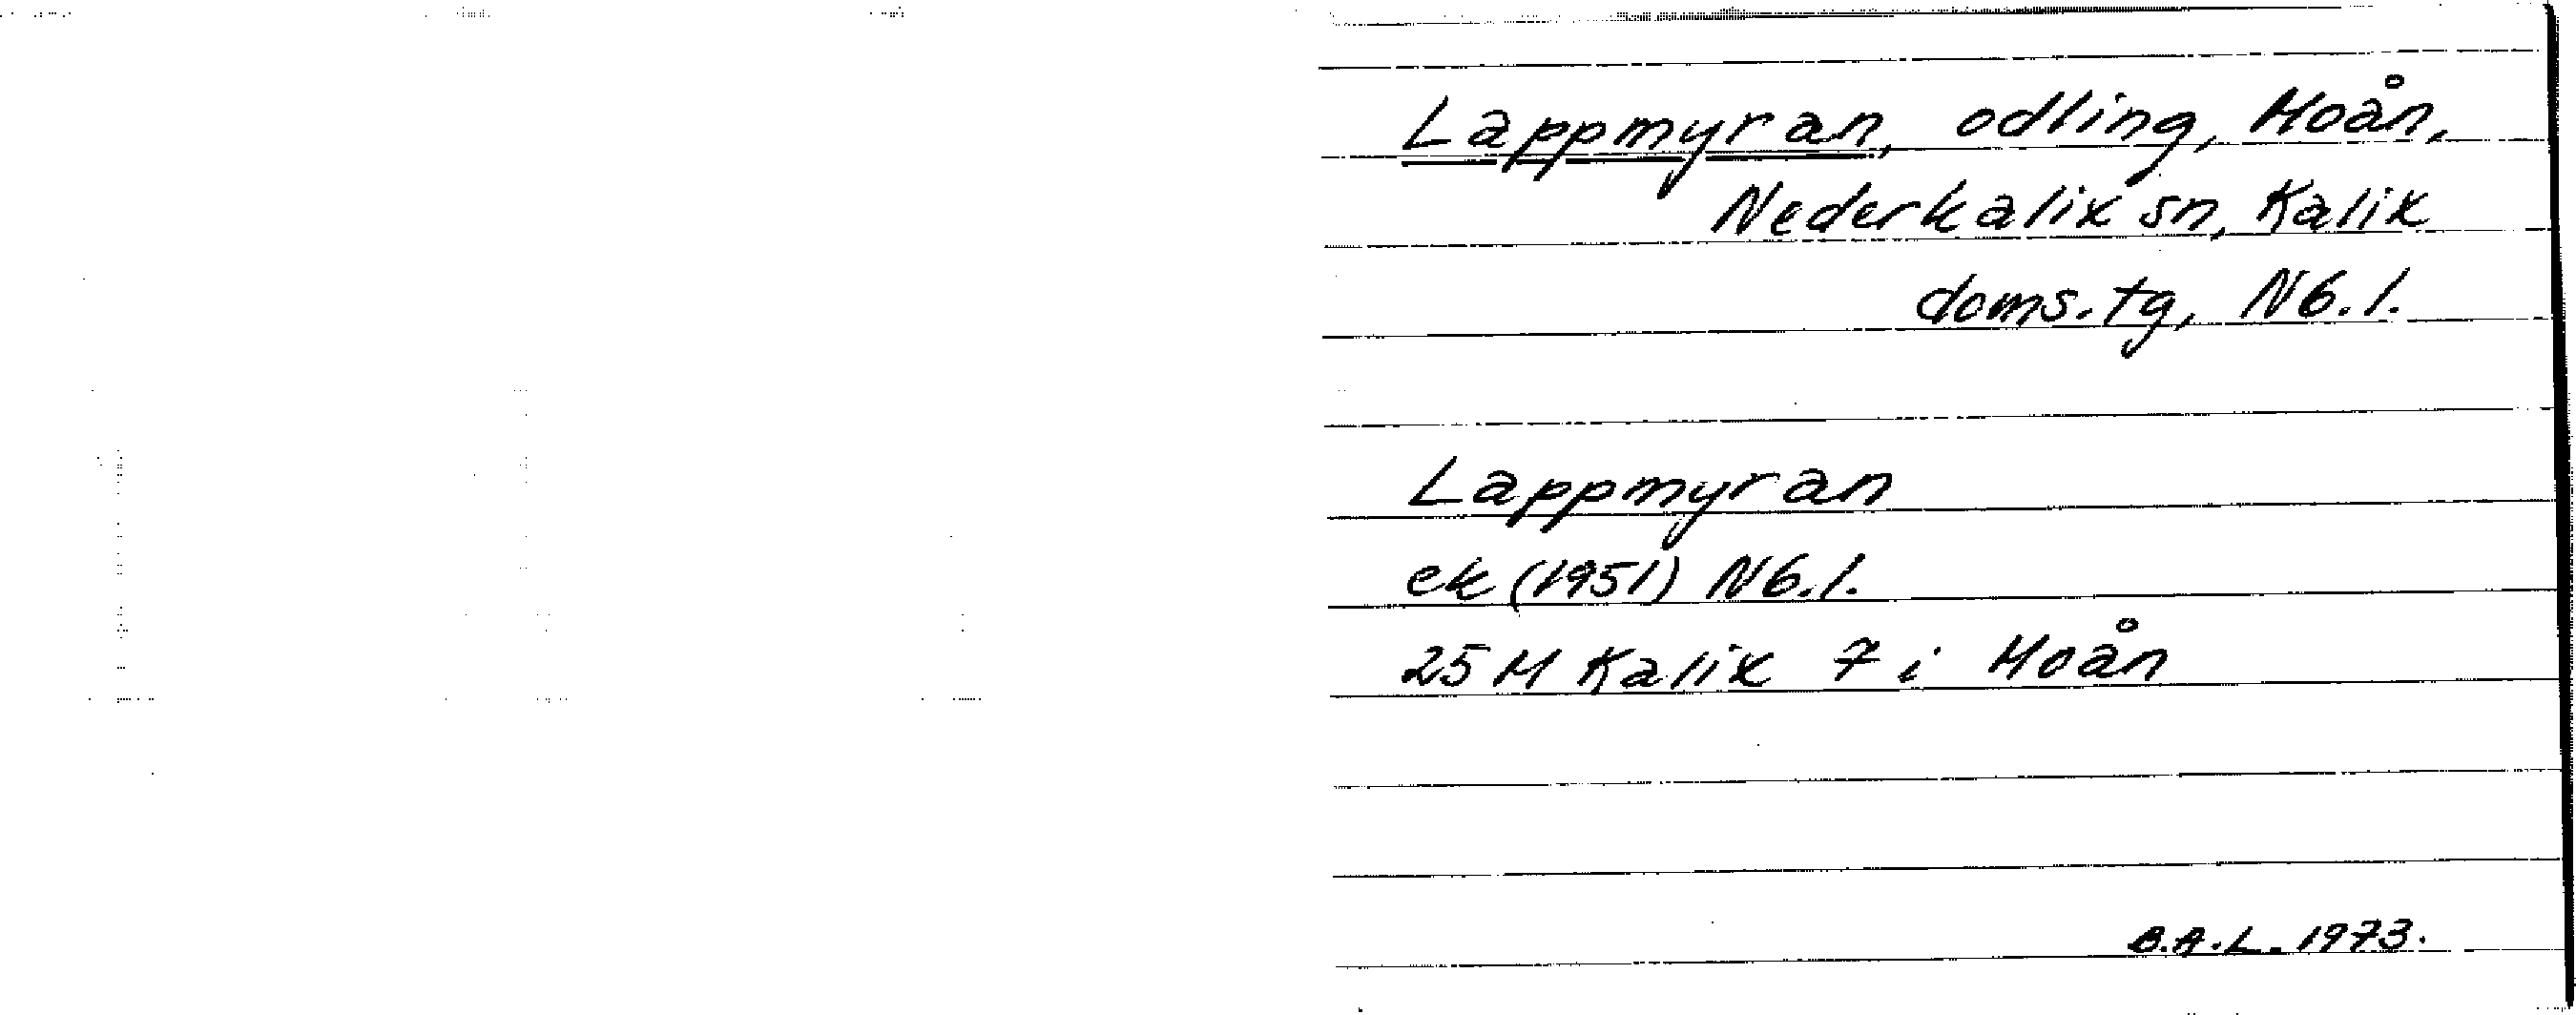 Lappmyran, odling, Moån,
Nederkalix sn, Kalix
doms.tg, Nb.l.
Lappmyran
ek (1951) Nb.l.
25 M Kalix 7 i Moån
B.A.L. 1973.